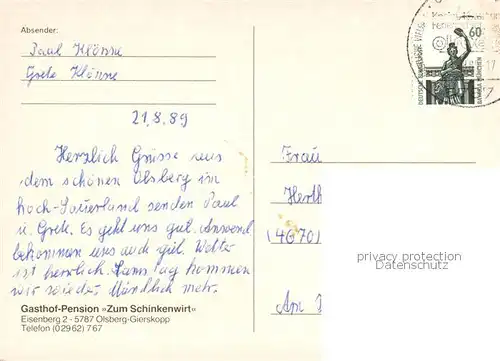 Absender:
Paul Klönne
Grete Klönne
21.8.89
60
DEUTSCHE BUNDESPOST
BAVARIA MÜNCHEN
Herzlich Grüsse aus
dem schönen Olsberg im
hoch-Sauerland senden Paul
u. Grete. Es geht uns gut. Anwend
bekommen uns auch gut. Wetter
ist herrlich. Samstag kommen
wir wieder. Mündlich mehr.
Frau
Herth
(4670)
Am
privacy protection
Datenschutz
Gasthof-Pension »Zum Schinkenwirt«
Eisenberg 2 - 5787 Olsberg-Gierskopp
Telefon (02962) 767